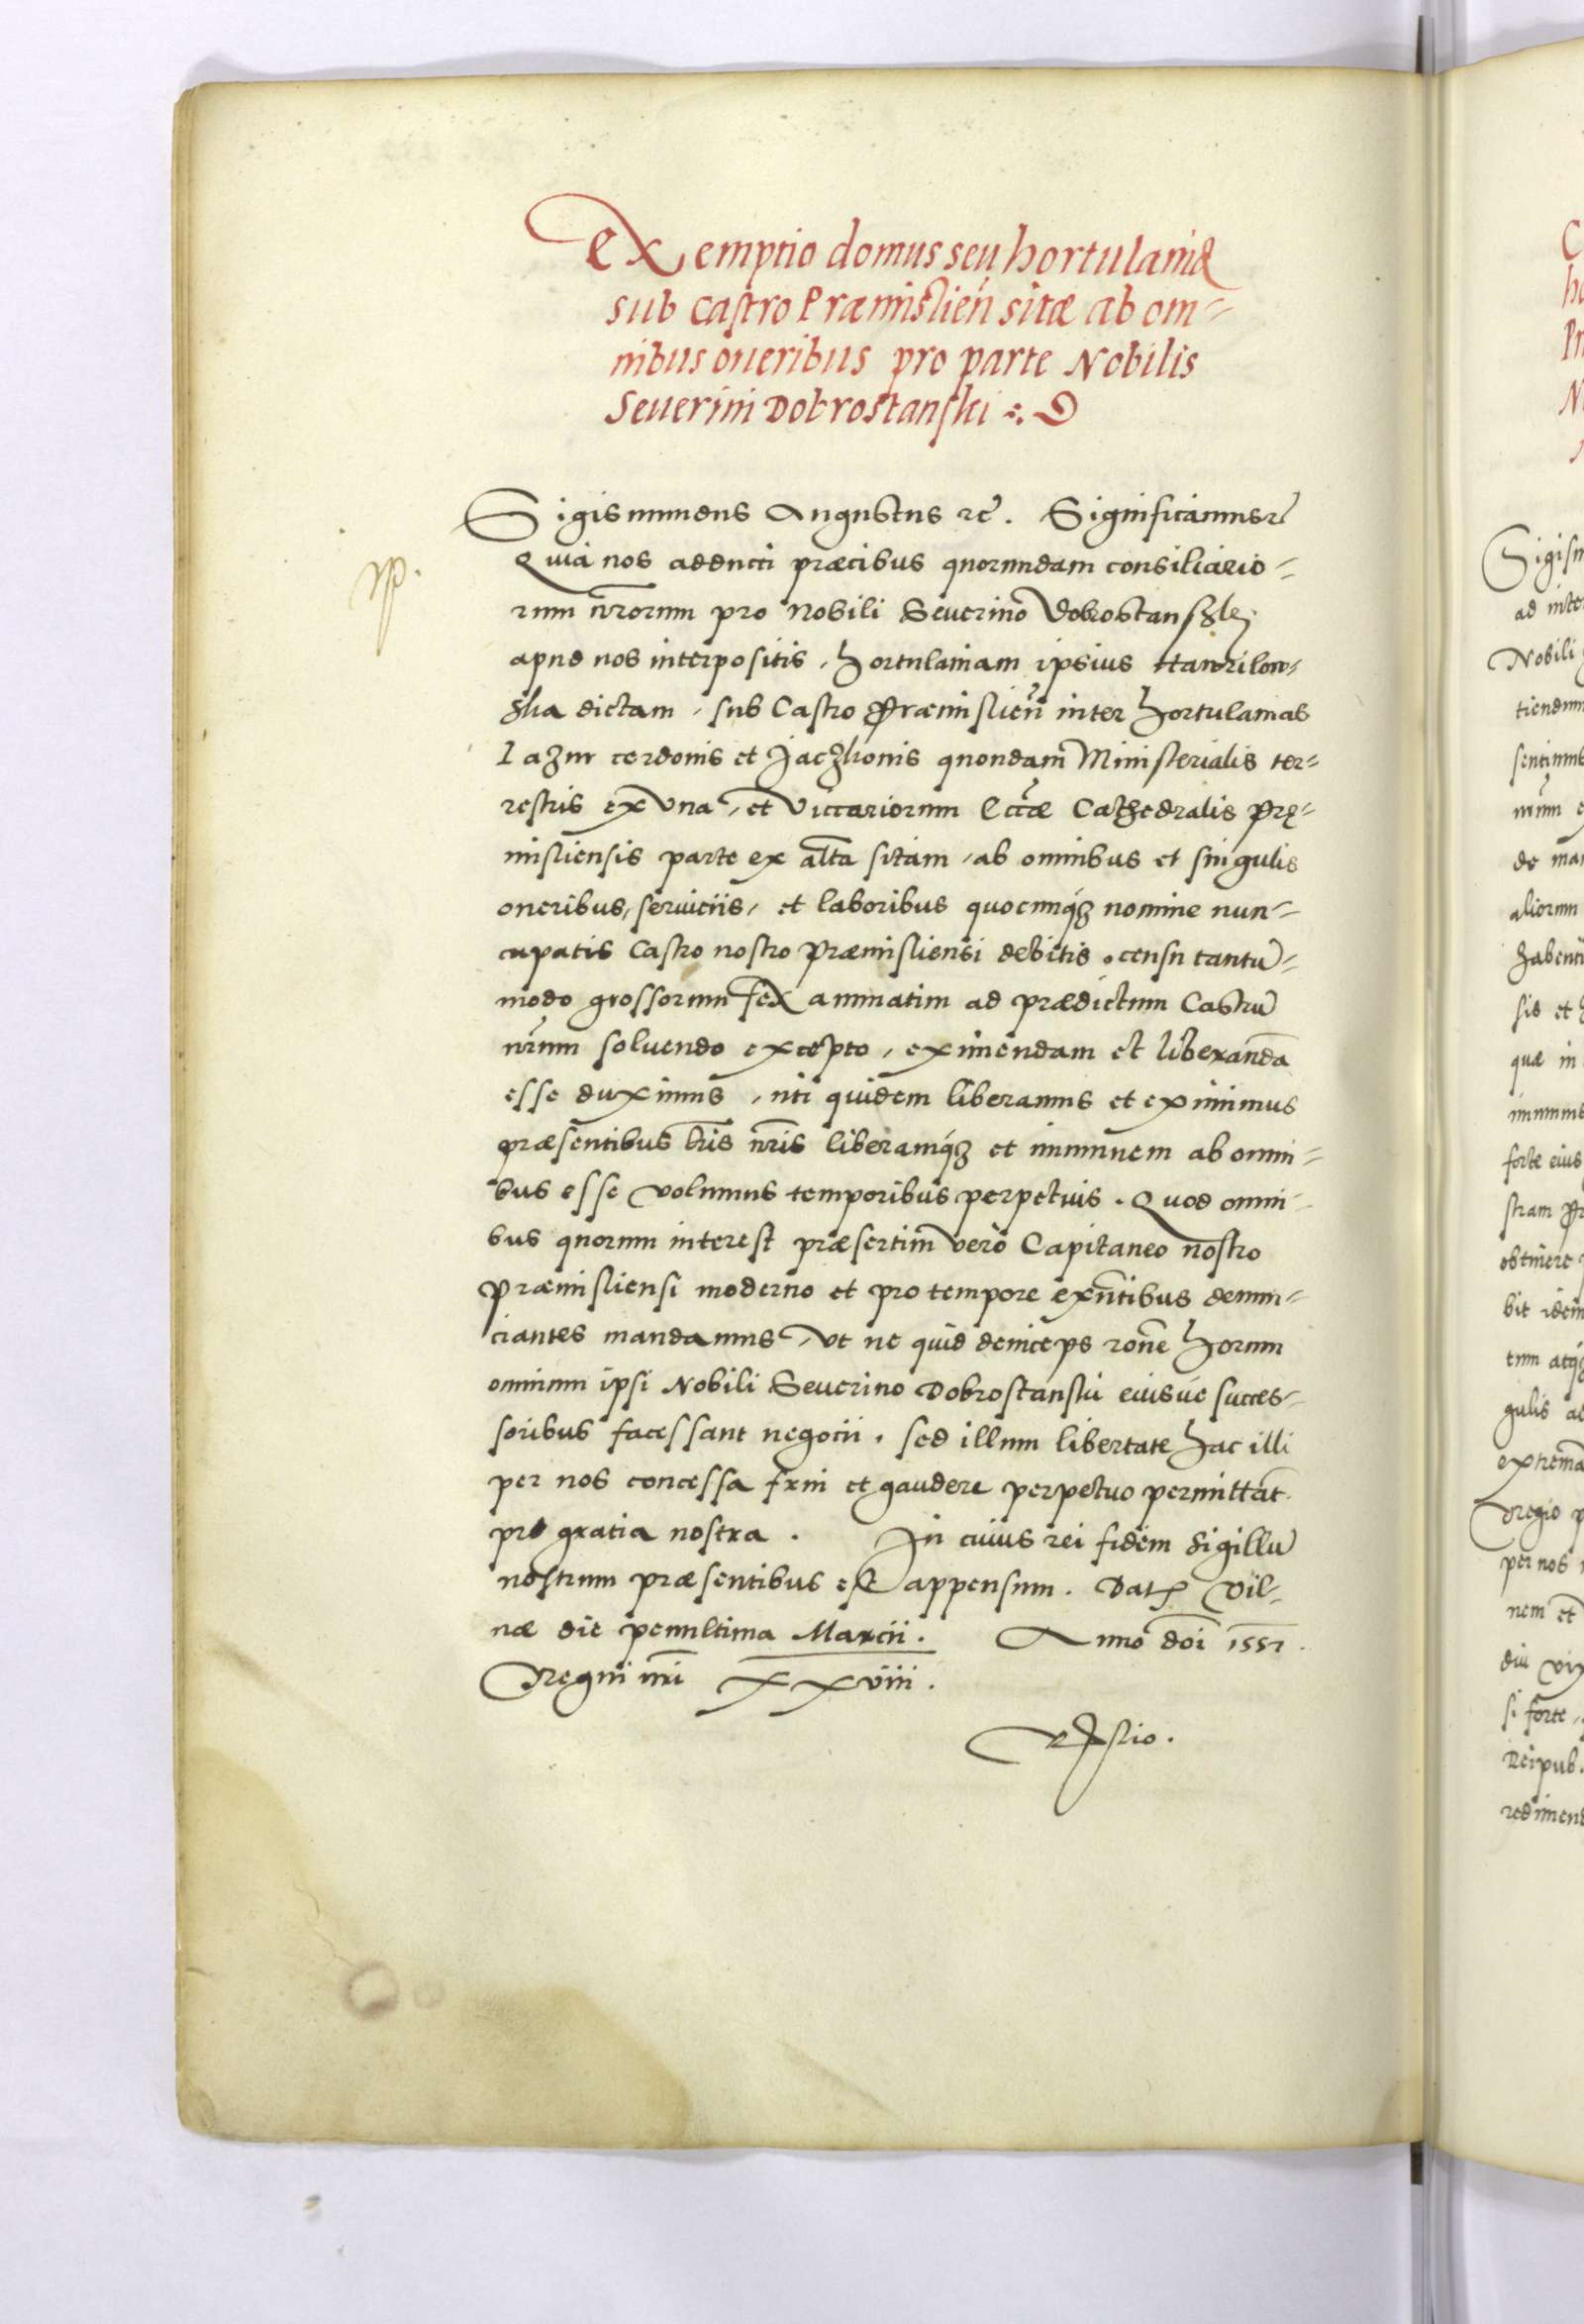 Exemptio domus seu hortulaniæ
sub castro Præmislień sitæ ab om-
nibus oneribus pro parte Nobilis
Seuerini Dobrostanski
Sigismundus Augustus rc̃. Significamus rc̃
Quia nos adducti præcibus quorundam consiliario-
rum nr̃orum pro Nobili Seuerino Dobrostanski
apud nos interpositis, hortulaniam ipsius
dictam, sub Castro Præmislień inter hortulanias
Iazur cerdonis et Jaczkonis quondam Ministerialis ter-
restris ex vna, et Viccariorum Eccł̃æ Cathedralis Prę-
misliensis parte ex alt̃a sitam, ab omnibus et singulis
oneribus, seruiciis, et laboribus quocunq́ȝ nomine nun-
cupatis Castro nostro Præmisliensi debitis, censu tantũ-
modo grossorum sex annuatim ad prædictum Castrũ
nr̃um soluendo excepto, eximendam et liberandã
esse duximus, uti quidem liberamus et eximimus
præsentibus lr̃is nr̃is liberamq́ȝ et immunem ab omni-
bus esse volumus temporibus perpetuis. Quod omni-
bus quorum interest præsertim vero Capitaneo nostro
Præmisliensi moderno et pro tempore exñtibus denun-
ciantes mandamus, vt ne quid deinceps rõne horum
omnium ipsi Nobili Seuerino Dobrostanski eiusúe succes-
soribus facessant negocii. sed illum libertate hac illi
per nos concessa frui et gaudere perpetuo permittãt
pro gratia nostra. In cuius rei fidem sigillũ
nostrum præsentibus est appensum. Dat̃ Vil-
næ die penultima Marcii. Anno dõi 1551.
Regni nr̃i xxviii.